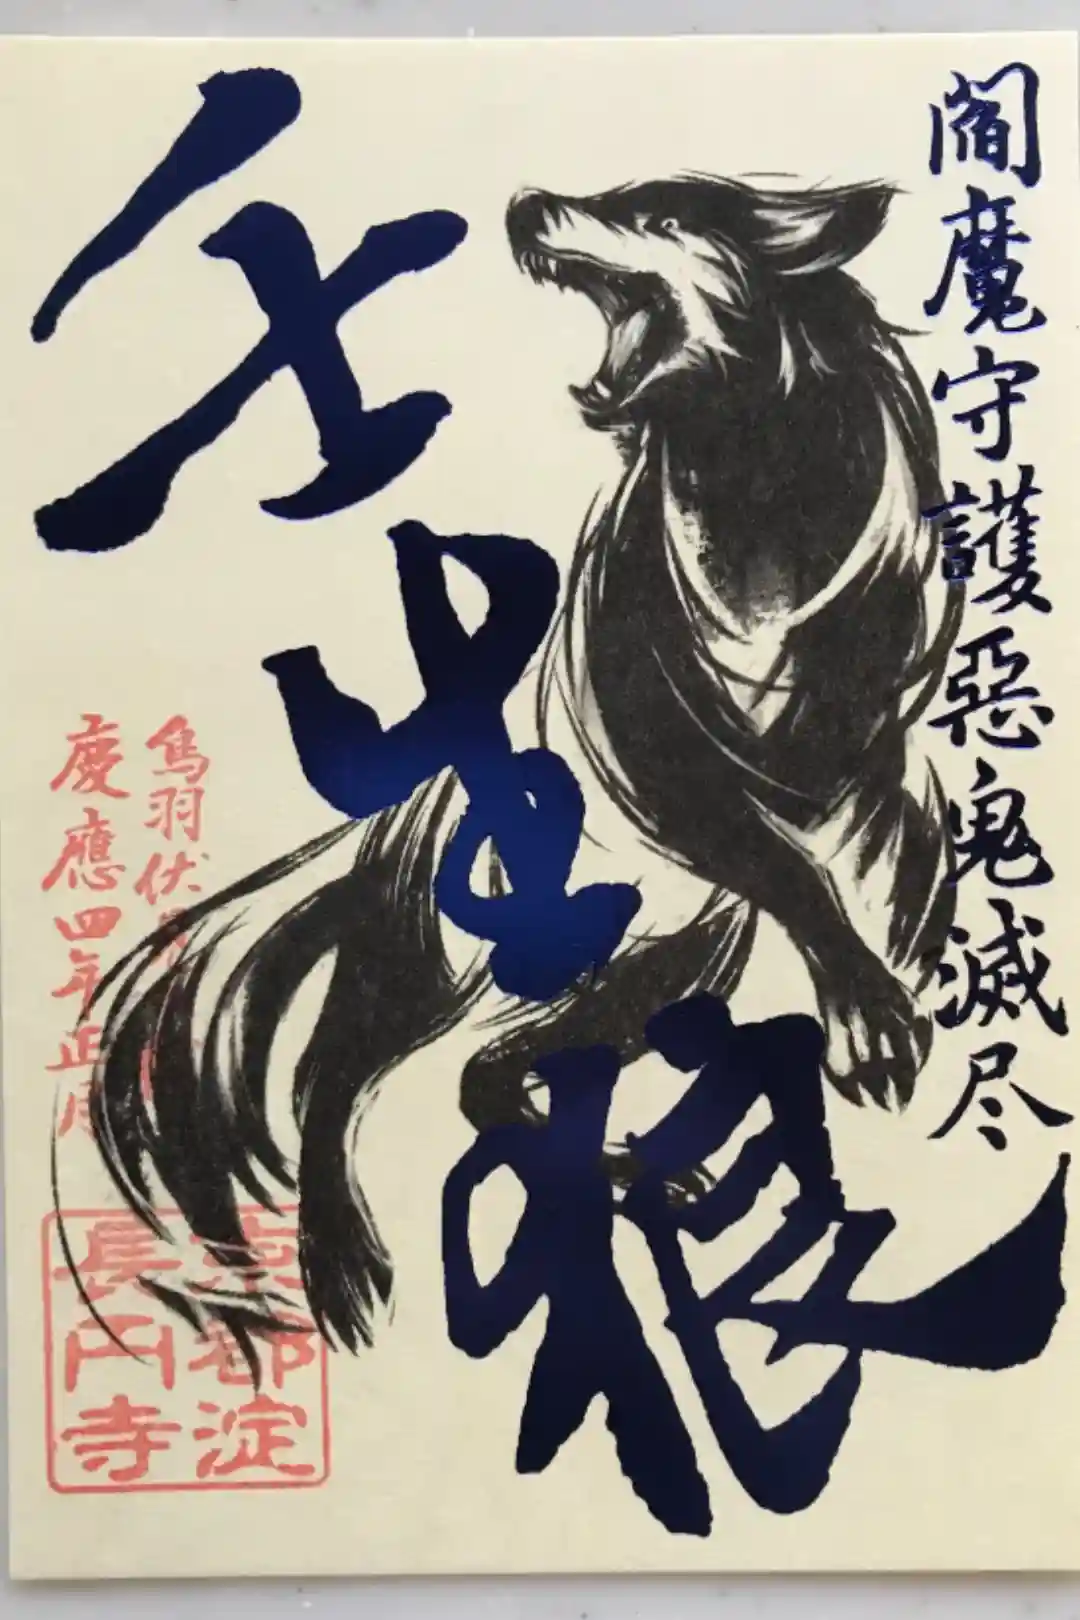 閻魔守護惡鬼滅尽
壬生狼
鳥羽伏見
慶應四年正月
京都淀
長円寺